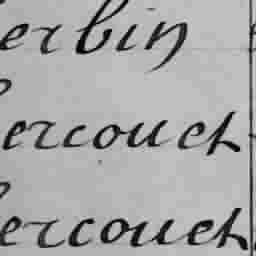 erbin
ercouet
ercouet